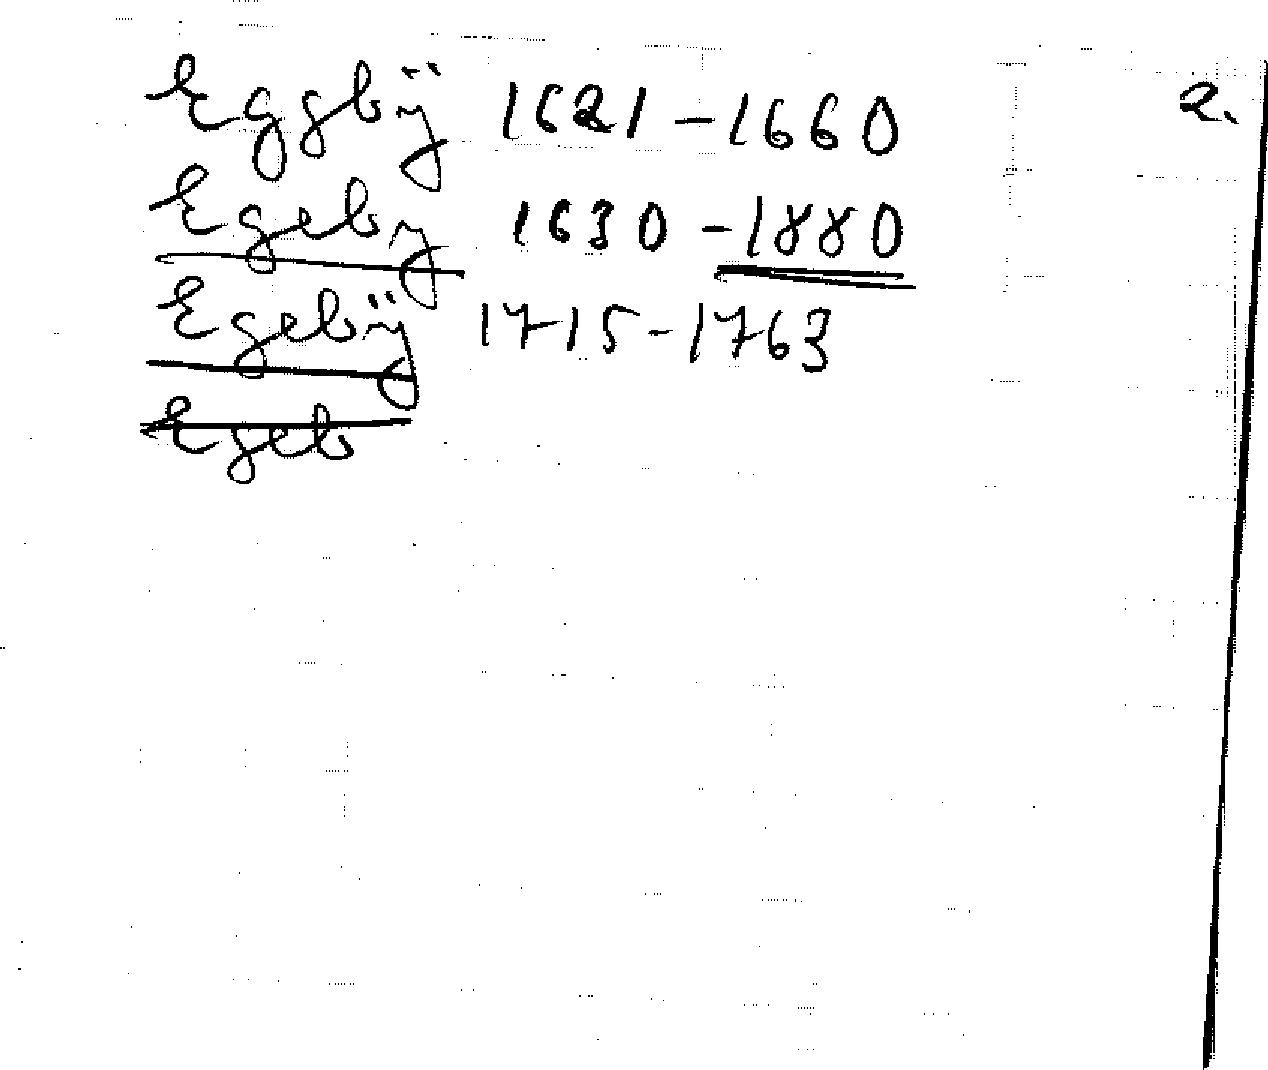 Eggbÿ 1621 - 1660 2.
Egeby 1630 - 1880
Egebÿ 1715 - 1763
Egeb